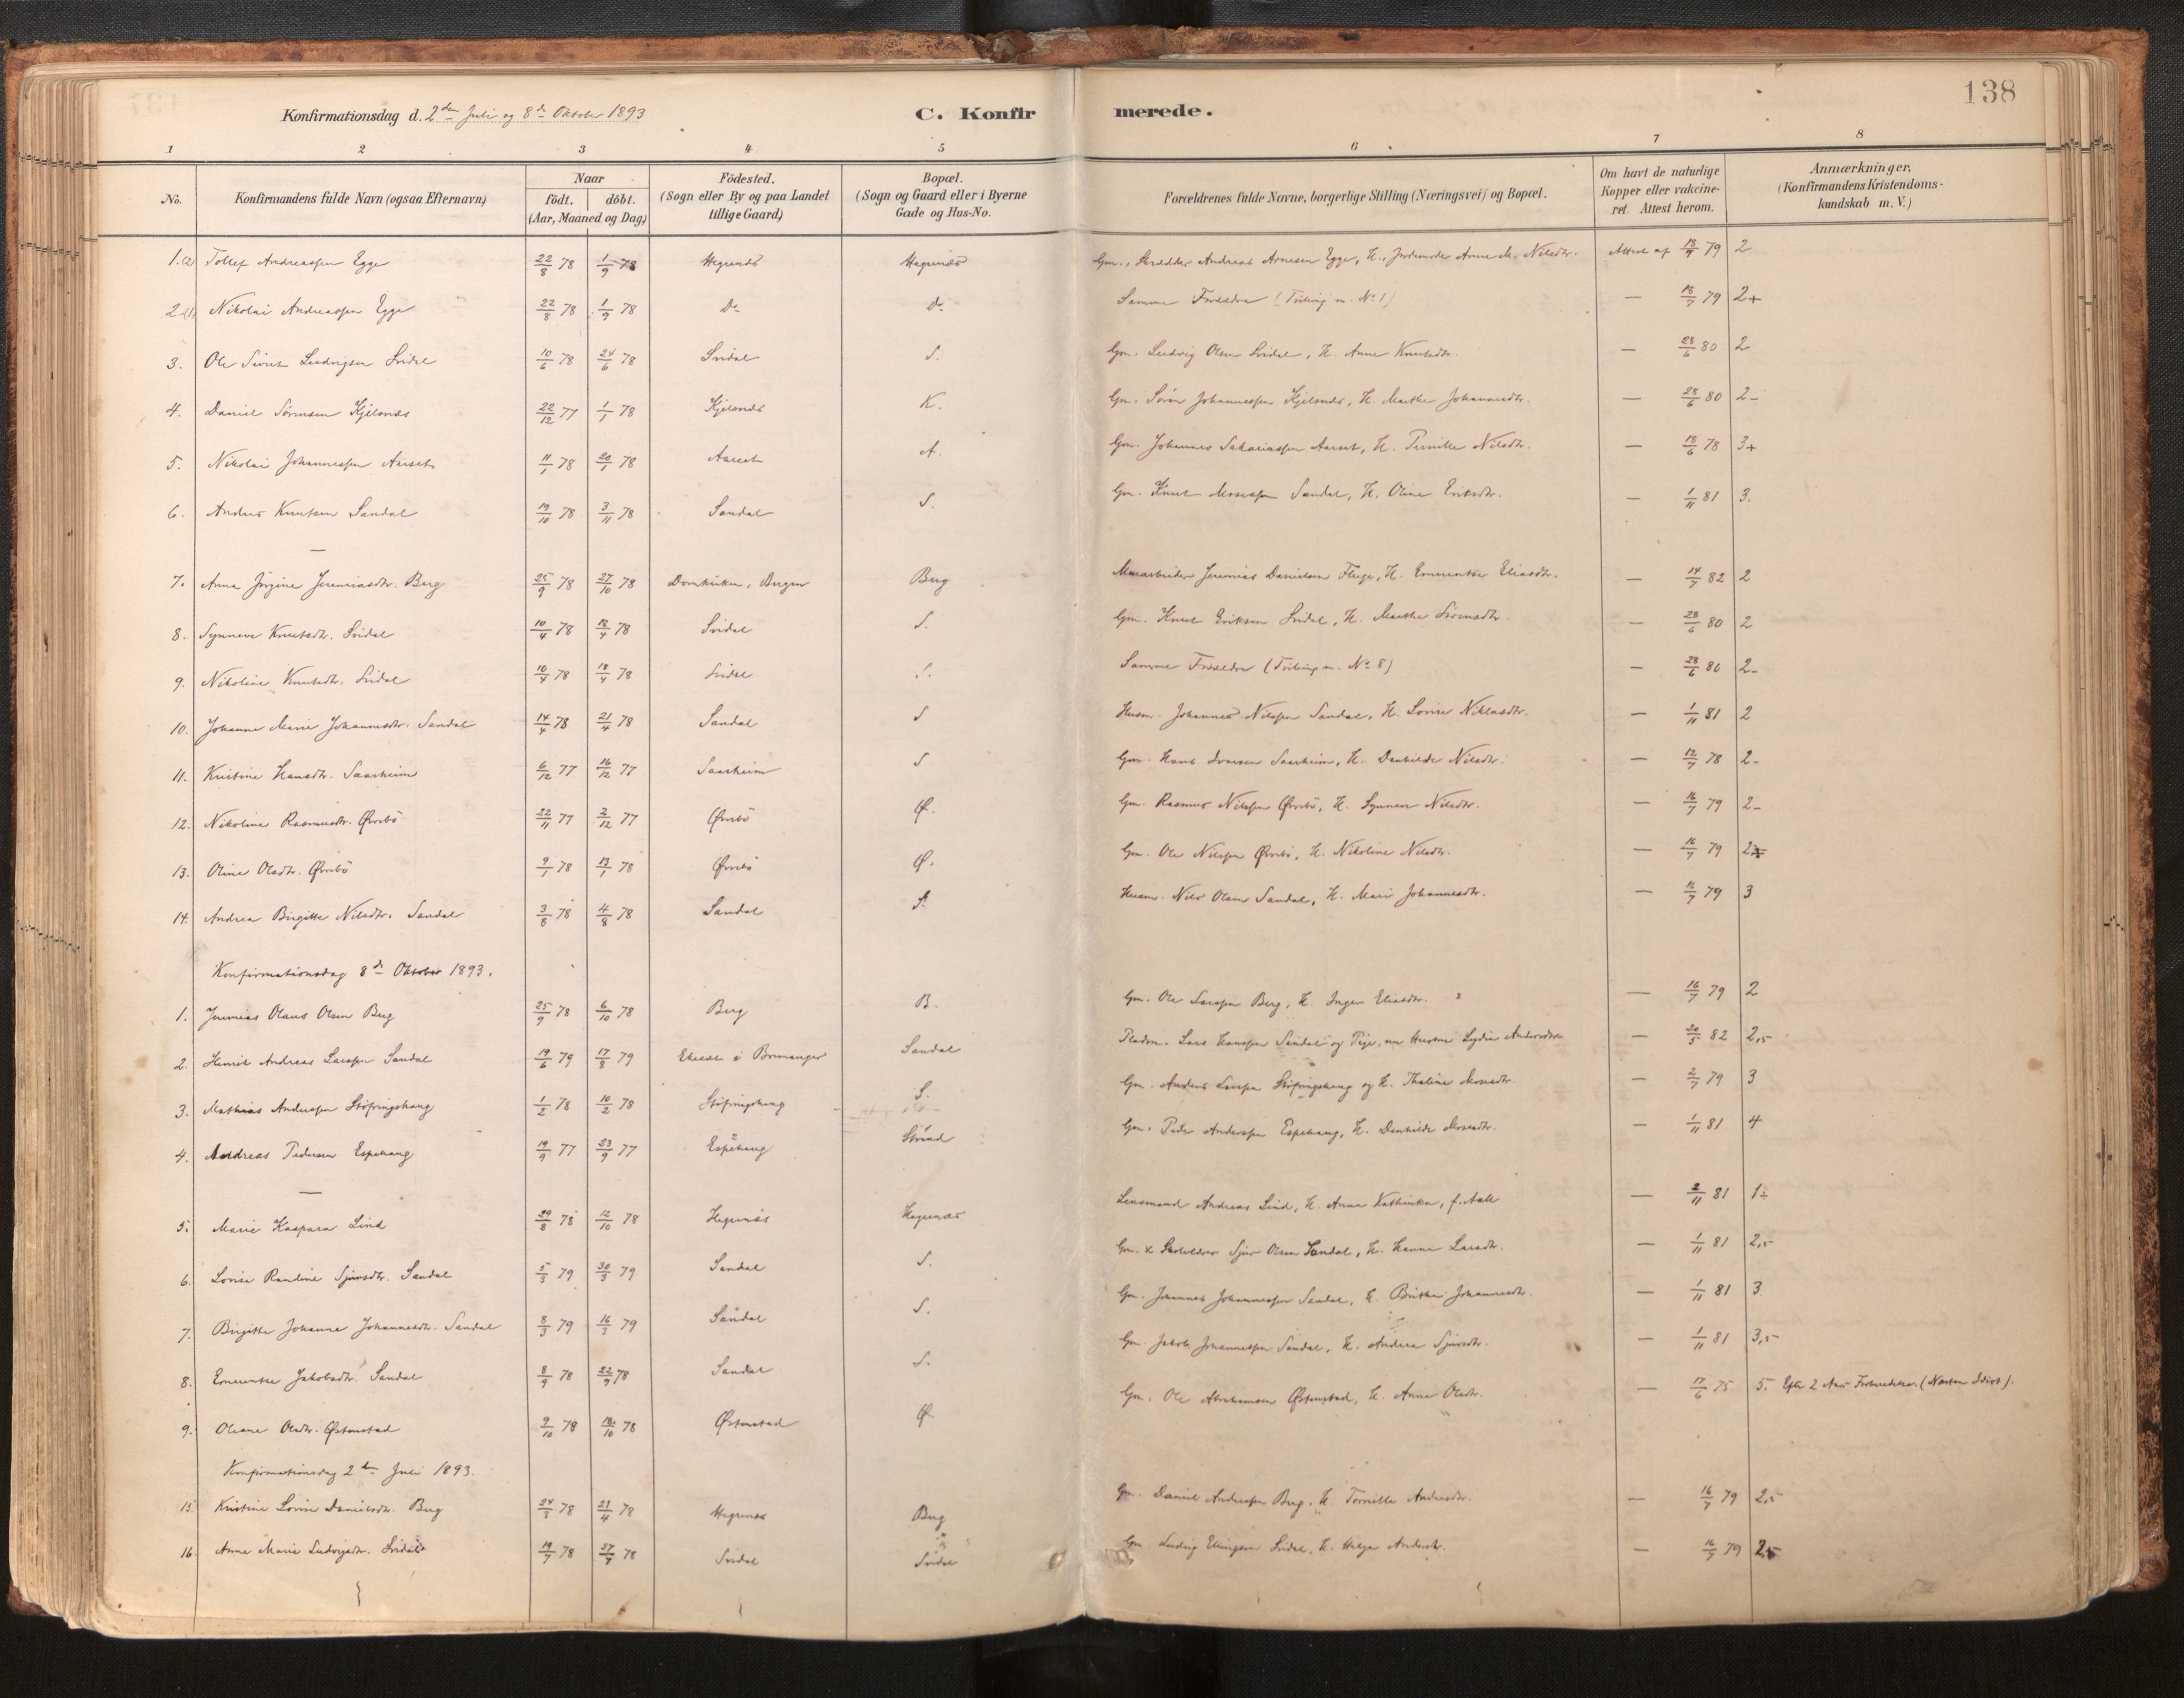 138
Konfirmationsdag d. 2den Juli og 8de Oktober 1893
C. Konfirmerede.
1 2 3 4 5 6 7 8
No. Konfirmandens fulde Navn (ogsaa Efternavn) Naar födt. döbt. (Aar, Maaned og Dag) Födested. (Sogn eller By og paa Landet tillige Gaard) Bopæl. (Sogn og Gaard eller i Byerne Gade og Hus-No. Forældrenes fulde Navne, borgerlige Stilling (Næringsvei) og Bopæl. Om havt de naturlige Kopper eller vakcineret Attest herom. Anmærkninger. (Konfirmandens Kristendomskundskab m. V.)
1.(2) Tollef Andreassen Egge 22/8 78 1/9 78 Hegrenæs Hegrenæs Gm., Skrædder Andreas Arnesen Egge, H., Jordemoder Anne M. Nilsdtr. Attest af 79 2
2.(1) Nikolai Andreassen Egge 22/8 78 1/9 78 Do Do Samme Forældre (Tvilling m. No 1) — 18/7 79 2+
3. Ole Sivert Ludvigsen Svidal 10/6 78 24/6 78 Svidal S. Gm. Ludvig Olsen Svidal, H. Anne Knutsdtr. — 28/6 80 2
4. Daniel Sörensen Kjelsnæs 22/12 77 1/1 78 Kjelsnæs K. Gm. Sören Johannessen Kjelsnæs, H. Marthe Johannesdtr. — 28/6 80 2-
5. Nikolai Johannessen Aarset 11/1 78 20/1 78 Aarset A. Gm. Johannes Sakariassen Aarset, H. Pernille Nilsdtr. — 18/6 78 3+
6. Anders Knutsen Sandal 19/10 78 3/11 78 Sandal S. Gm. Knut Mosessen Sandal, H. Oline Eriksdtr. — 1/11 81 3.
—
7. Anna Jörgine Jeremiasdtr. Berg 25/9 78 27/10 78 Domkirken, Bergen Berg Murarbeider Jeremias Danielsen Fluge, H. Emerentse Eliasdtr. — 14/7 82 2
8. Synneve Knutsdtr. Svidal 10/4 78 18/4 78 Svidal S. Gm. Knut Eriksen Svidal, H. Marthe Sörensdtr. — 28/6 80 2
9. Nikoline Knutsdtr. Svidal 10/4 78 18/4 78 Svidal S. Samme Forældre (Tvilling m. No 8) — 28/6 80 2-
10. Johanne Marie Johannesdtr. Sandal 14/4 78 21/4 78 Sandal S Husm. Johannes Nilssen Sandal, H. Lovise Niklasdtr. — 1/11 81 2
11. Kristine Hansdtr. Saarheim 6/12 77 16/12 77 Saarheim S Gm. Hans Ivarsen Saarheim, H. Danhilde Nilsdtr. — 12/7 78 2-
12. Nikoline Rasmusdtr. Ørrebö 22/11 77 2/12 77 Ørrebö Ø. Gm. Rasmus Nilssen Ørrebö, H. Synneve Nilsdtr. — 16/7 79 2-
13. Oline Olsdtr. Ørrebö 9/1 78 13/1 78 Ørrebö Ø. Gm. Ole Nilssen Ørrebö, H. Nikoline Nilsdtr. — 16/7 79 2
14. Andrea Birgitte Nilsdtr. Sandal 3/8 78 4/8 78 Sandal S. Husm. Nils Olsen Sandal, H. Mari Johannesdtr. — 79 3
Konfirmationsdag 8de Oktober 1893.
1. Jeremias Olaus Olsen Berg 25/9 78 6/10 78 Berg B. Gm. Ole Larssen Berg, H. Inger Eliasdtr. — 16/7 79 2
2. Henrik Andreas Larssen Sandal 19/6 79 17/8 79 i Bremanger Sandal Pladsm. Lars Hanssen Sandal og Pige, nu Hustru Lydia Andersdtr. — 20/5 82 2,5
3. Mathias Anderssen Stöfringshaug 1/2 78 10/2 78 Stöfringshaug S. Gm. Anders Larssen Stöfringshaug og H. Thaline Mosesdtr. — 2/7 79 3
4. Andreas Pedersen Espehaug 19/9 77 23/9 77 Espehaug Strand Gm. Peder Anderssen Espehaug, H. Danhilde Mosesdtr. — 1/11 81 4
—
5. Marie Kaspara Lind 29/8 78 12/10 78 Hegrenæs Hegrenæs Lensmand Andreas Lind, H. Anna Kathinka, f. Aall — 2/11 81 1÷
6. Lovise Randine Sjursdtr. Sandal 5/3 79 30/3 79 Sandal S. Gm. & Skolelærer Sjur Olsen Sandal, H. Hanna Larsdtr. — 1/11 81 2,5
7. Birgitte Johanne Johannesdtr. Sandal 8/3 79 16/3 79 Sandal S. Gm. Johannes Johannessen Sandal, H. Brithe Johannesdtr. — 1/11 81 3
8. Emerentse Jakobsdtr. Sandal 8/9 78 22/9 78 Sandal S. Gm. Jakob Johannessen Sandal, H. Andrea Sjursdtr. — 1/11 81 3,5
9. Oleane Olsdtr. Østenstad 9/10 78 78 Østenstad Ø. Gm. Ole Abrahamsen Østenstad, H. Anne Olsdtr. — 17/6 75 5. Efter 2 Aars Forberedelse. (Næsten Idiot).
Konfirmationsdag 2den Juli 1893.
15. Kristine Lovise Danielsdtr. Berg 24/3 78 21/4 78 Hegrenæs Berg Gm. Daniel Anderssen Berg, H. Andersdtr. — 16/7 79 2,5
16. Anne Marie Ludvigsdtr. Svidal 19/7 78 27/7 78 Svidal Svidal Gm. Ludvig Ellingsen Svidal, H. Helge Andersdtr. — 16/7 79 2,5